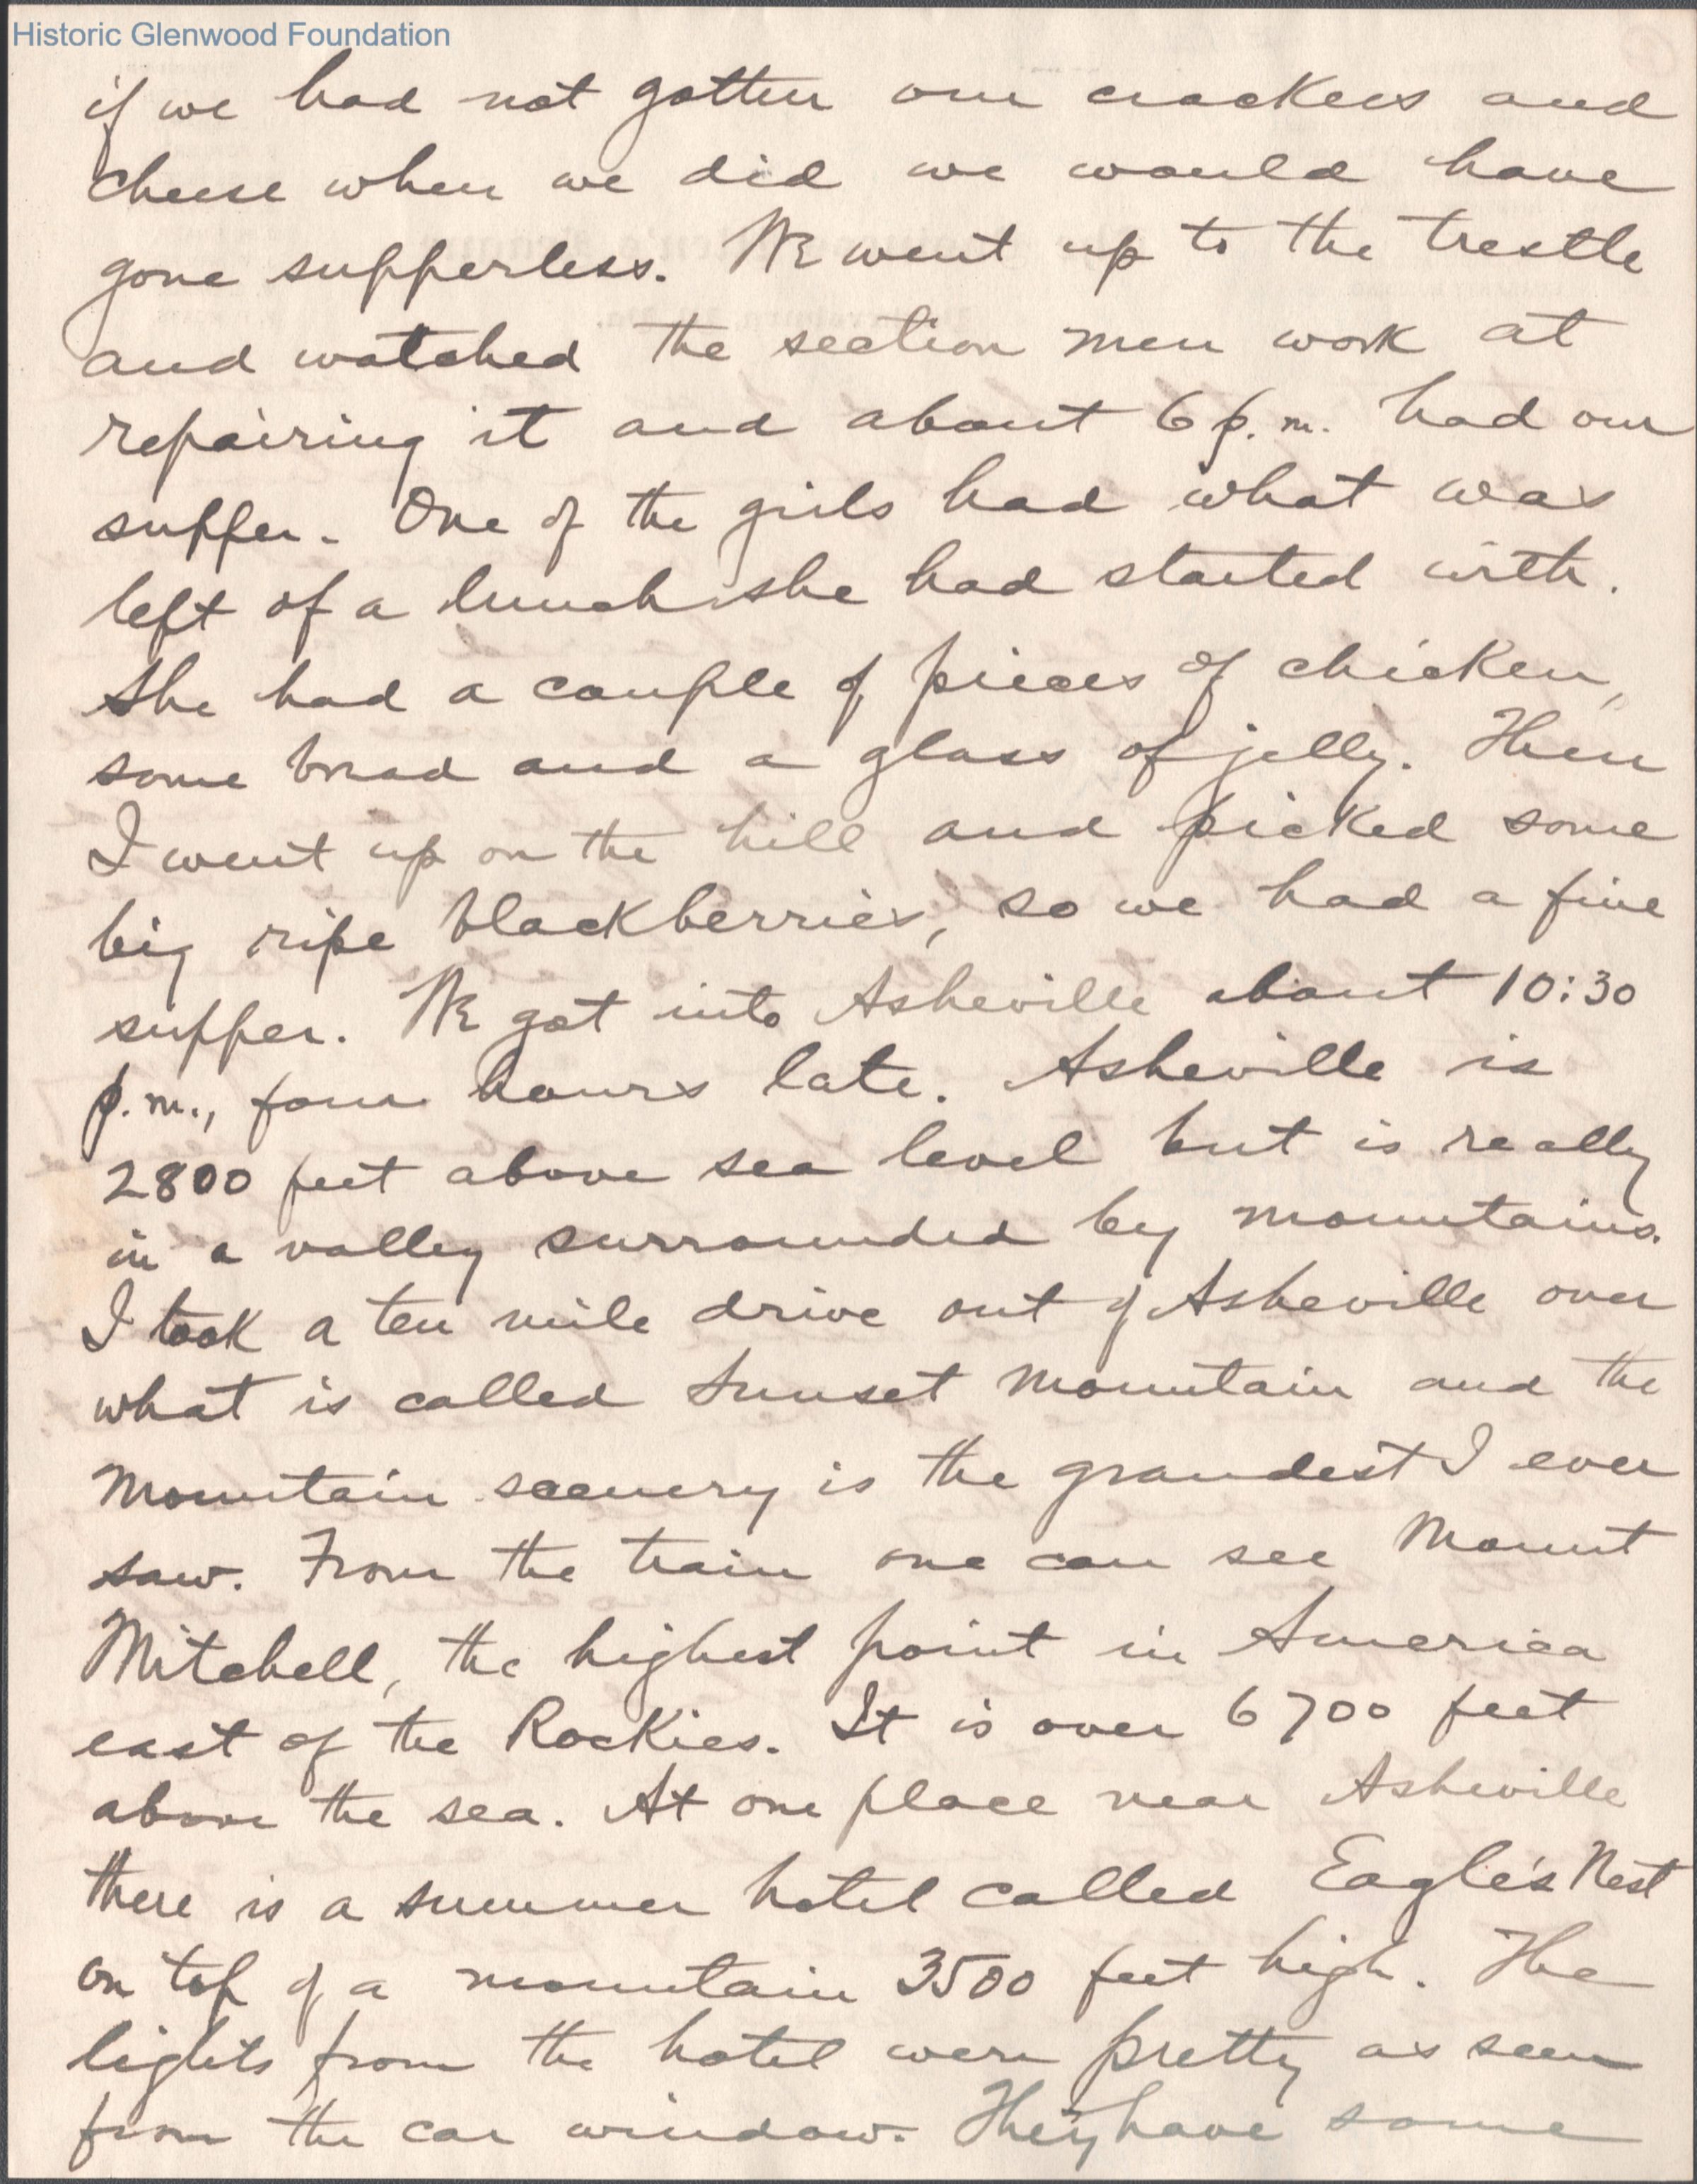 Historic Glenwood Foundation
if we had not gotten our crackers and
cheese when we did we would have
gone supperless. We went up to the trestle
and watched the section men work at
repairing it and about 6 p.m. had our
supper. One of the girls had what was
left of a lunch she had started with.
She had a couple of pieces of chicken,
some bread and a glass of jelly. Then
I went up on the hill and picked some
big ripe blackberries, so we had a fine
supper. We got into Asheville about 10:30
p.m., four hours late. Asheville is
2800 feet above sea level but is really
in a valley surrounded by mountains.
I took a ten mile drive out of Asheville over
what is called Sunset Mountain and the
Mountain scenery is the grandest I ever
saw. From the train one can see Mount
Mitchell, the highest point in America
east of the Rockies. It is over 6700 feet
above the sea. At one place near Asheville
there is a summer hotel called Eagle's Nest
on top of a mountain 3500 feet high. The
lights from the hotel were pretty as seen
from the car window. They have some